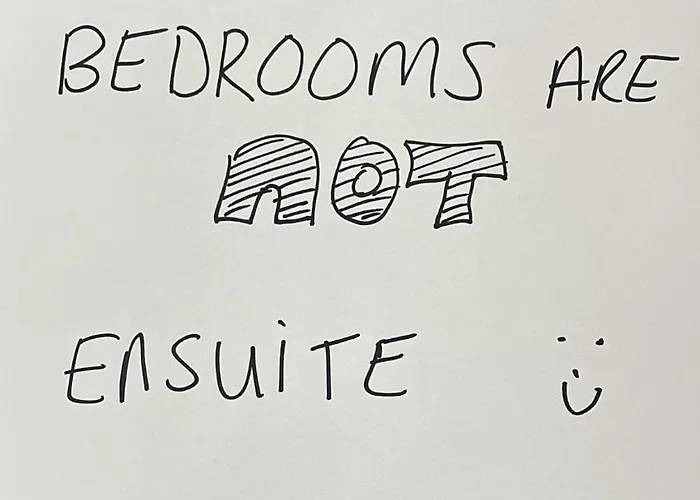 BEDROOMS ARE
NOT
ENSUITE